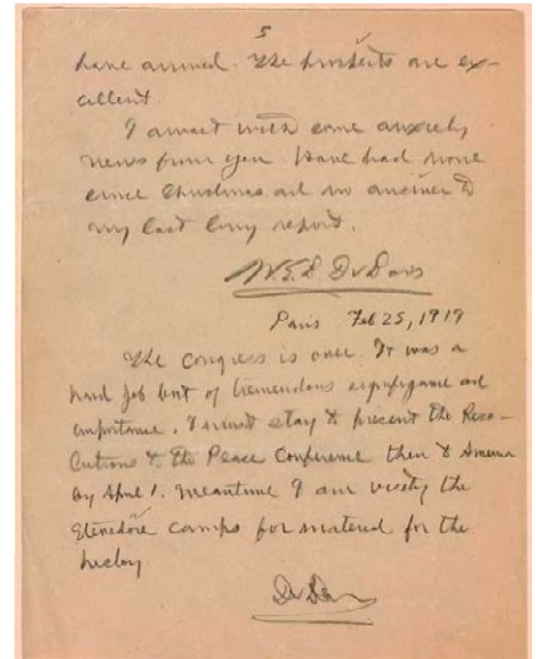 5
have arrived. The prospects are ex-
cellent.
I await with some anxiety
news from you. Have had none
since Christmas and no answer to
my last long report.
W.E.B. Du Bois
Paris Feb 25, 1919
The Congress is over. It was a
hard job but of tremendous significance and
importance. I must stay to present the Reso-
lutions to the Peace Conference then to America
by April 1. Meantime I am visiting the
camps for material for the
history
Du Bois